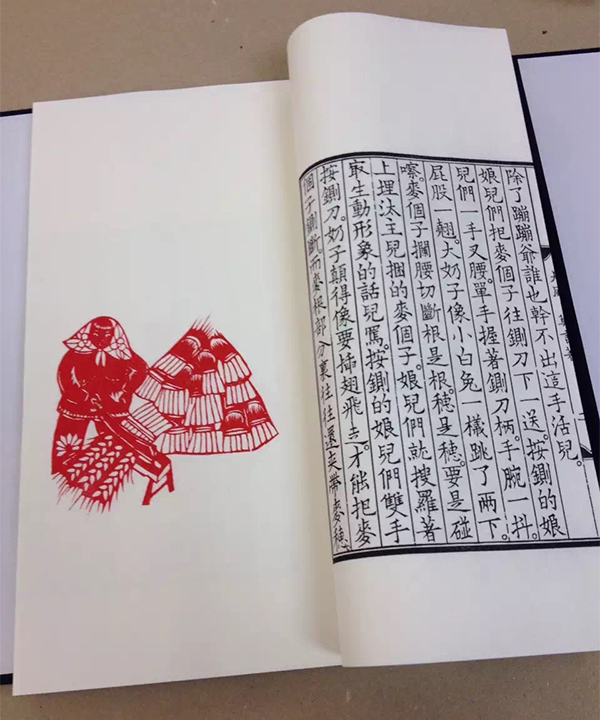 除了蹦蹦爺誰也幹不出這手活兒。
娘兒們把麥個子往鍘刀下一送。按鍘的娘
兒們一手叉腰。單手握著鍘刀柄。手腕一抖。
屁股一翹。大奶子像小白兔一樣跳了兩下。
嚓。麥個子攔腰切斷。根是根。穗是穗。要是碰
上埋汰王兒捆的麥個子。娘兒們就搜羅著
最生動形象的話兒罵。按鍘的娘兒們雙手
按鍘刀。奶子顛得像要插翅飛去。才能把麥
個子鍘斷。而麥根部分裏往往還夾帶麥穗